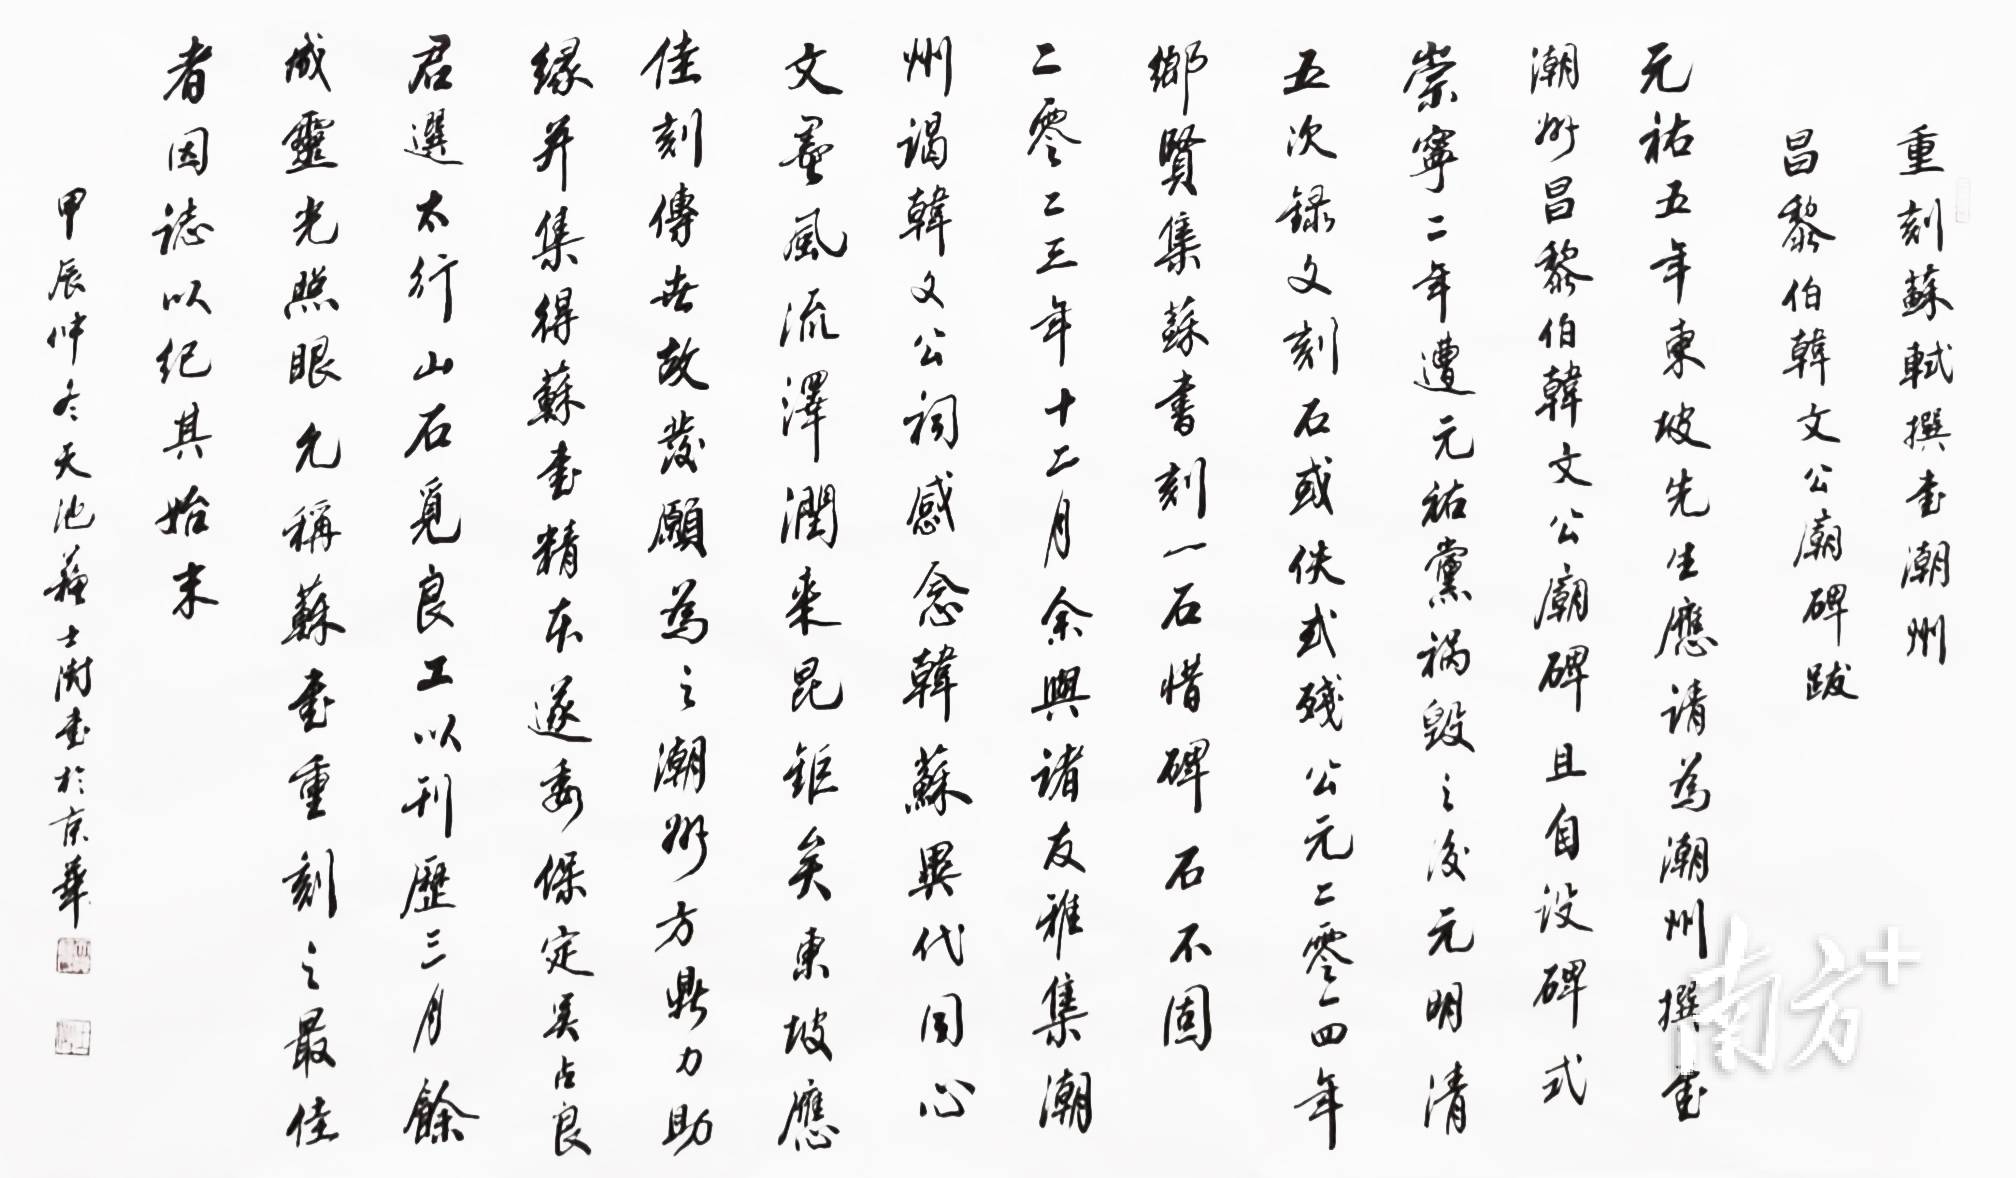 重刻蘇軾撰書潮州
昌黎伯韓文公廟碑跋
元祐五年東坡先生應請為潮州撰書
潮州昌黎伯韓文公廟碑且自设碑式
崇寧二年遭元祐黨禍毀之後元明清
五次録文刻石或佚或殘公元二零一四年
鄉賢集蘇書刻一石惜碑石不固
二零二三年十二月余與诸友雅集潮
州谒韓文公祠感念韓蘇異代同心
文星風流澤潤来昆鉅矣東坡應
佳刻傳世故發願為之潮州方鼎力助
缘并集得蘇書精本遂委保定吴占良
君選太行山石覓良工以刊歷三月餘
成靈光照眼允稱蘇書重刻之最佳
者因誌以纪其始末
甲辰仲冬天池蘇士澍書於京華
南方+